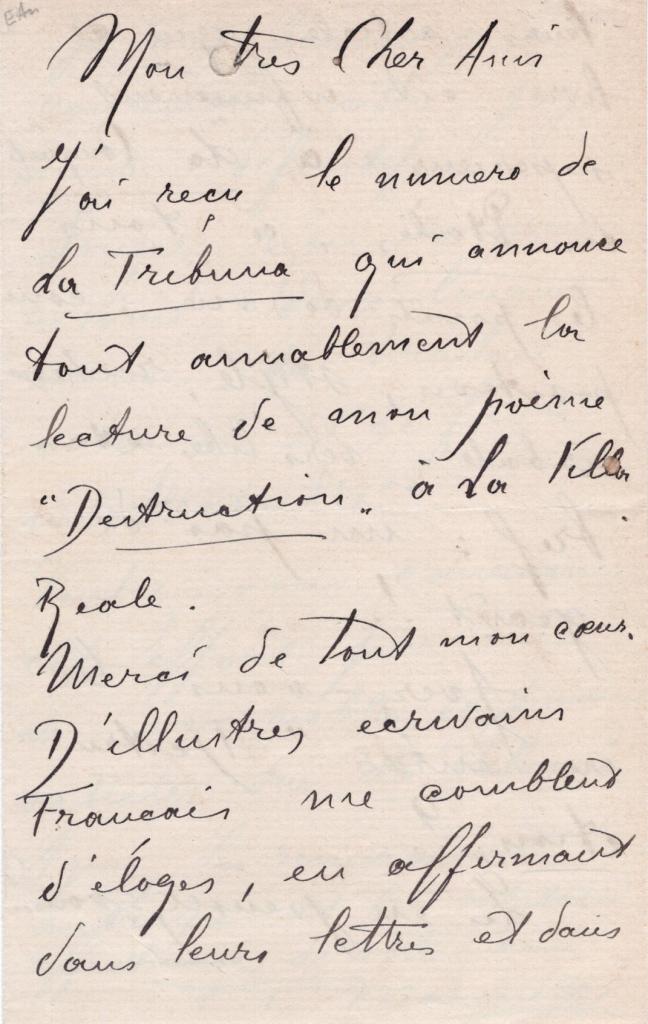 Mon tres Cher Ami
J'ai reçu le numero de
La Tribuna qui annonce
tout aimablement la
lecture de mon poème
"Destruction" à La Villa
Reale.
Merci de tout mon cœur.
D'illustres ecrivains
Francais me comblent
d'éloges, en affirmant
dans leurs lettres et dans